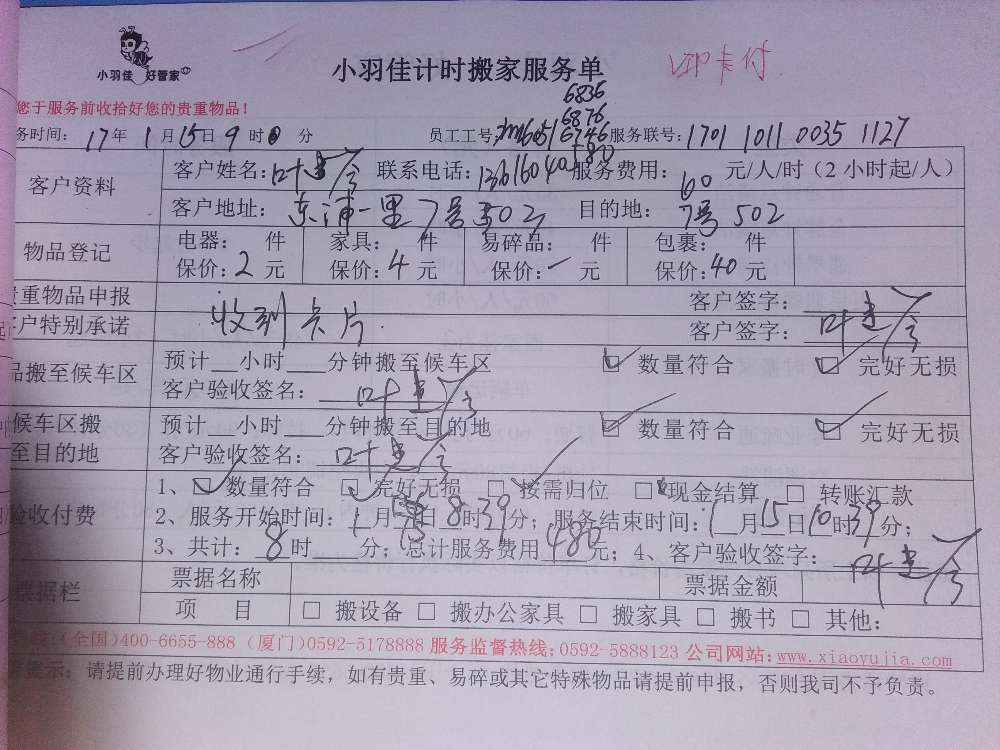 小羽佳 好管家
小羽佳计时搬家服务单
VIP卡付
您于服务前收拾好您的贵重物品！
6836
6876
务时间： 17年 1月15日9时0分 员工工号： 6746 服务联号：1701 1011 0035 1127
客户资料 客户姓名：叶建 联系电话： 服务费用：60元/人/时（2小时起/人）
客户地址：东浦一里7号502 目的地：7号502
物品登记 电器： 件 家具： 件 易碎品： 件 包裹： 件
保价：2元 保价：4元 保价：一元 保价：40元
贵重物品申报 客户签字：
客户特别承诺 收到卡片. 客户签字：叶建
品搬至候车区 预计__小时___分钟搬至候车区 数量符合 完好无损
客户验收签名：叶建
候车区搬至目的地 预计__小时___分钟搬至目的地 数量符合 完好无损
客户验收签名：叶建
验收付费 1、□数量符合 □完好无损 □按需归位 □现金结算 □转账汇款
2、服务开始时间：1月15日8时39分；服务结束时间：1月15日10时39分；
3、共计：8时 分；总计服务费用480元；4、客户验收签字：叶建
票据栏 票据名称 票据金额
项 目 □搬设备 □搬办公家具 □搬家具 □搬书 □其他：
（全国）400-6655-888（厦门）0592-5178888 服务监督热线：0592-5888123 公司网站：www.xiaoyujia.com
提示：请提前办理好物业通行手续，如有贵重、易碎或其它特殊物品请提前申报，否则我司不予负责。